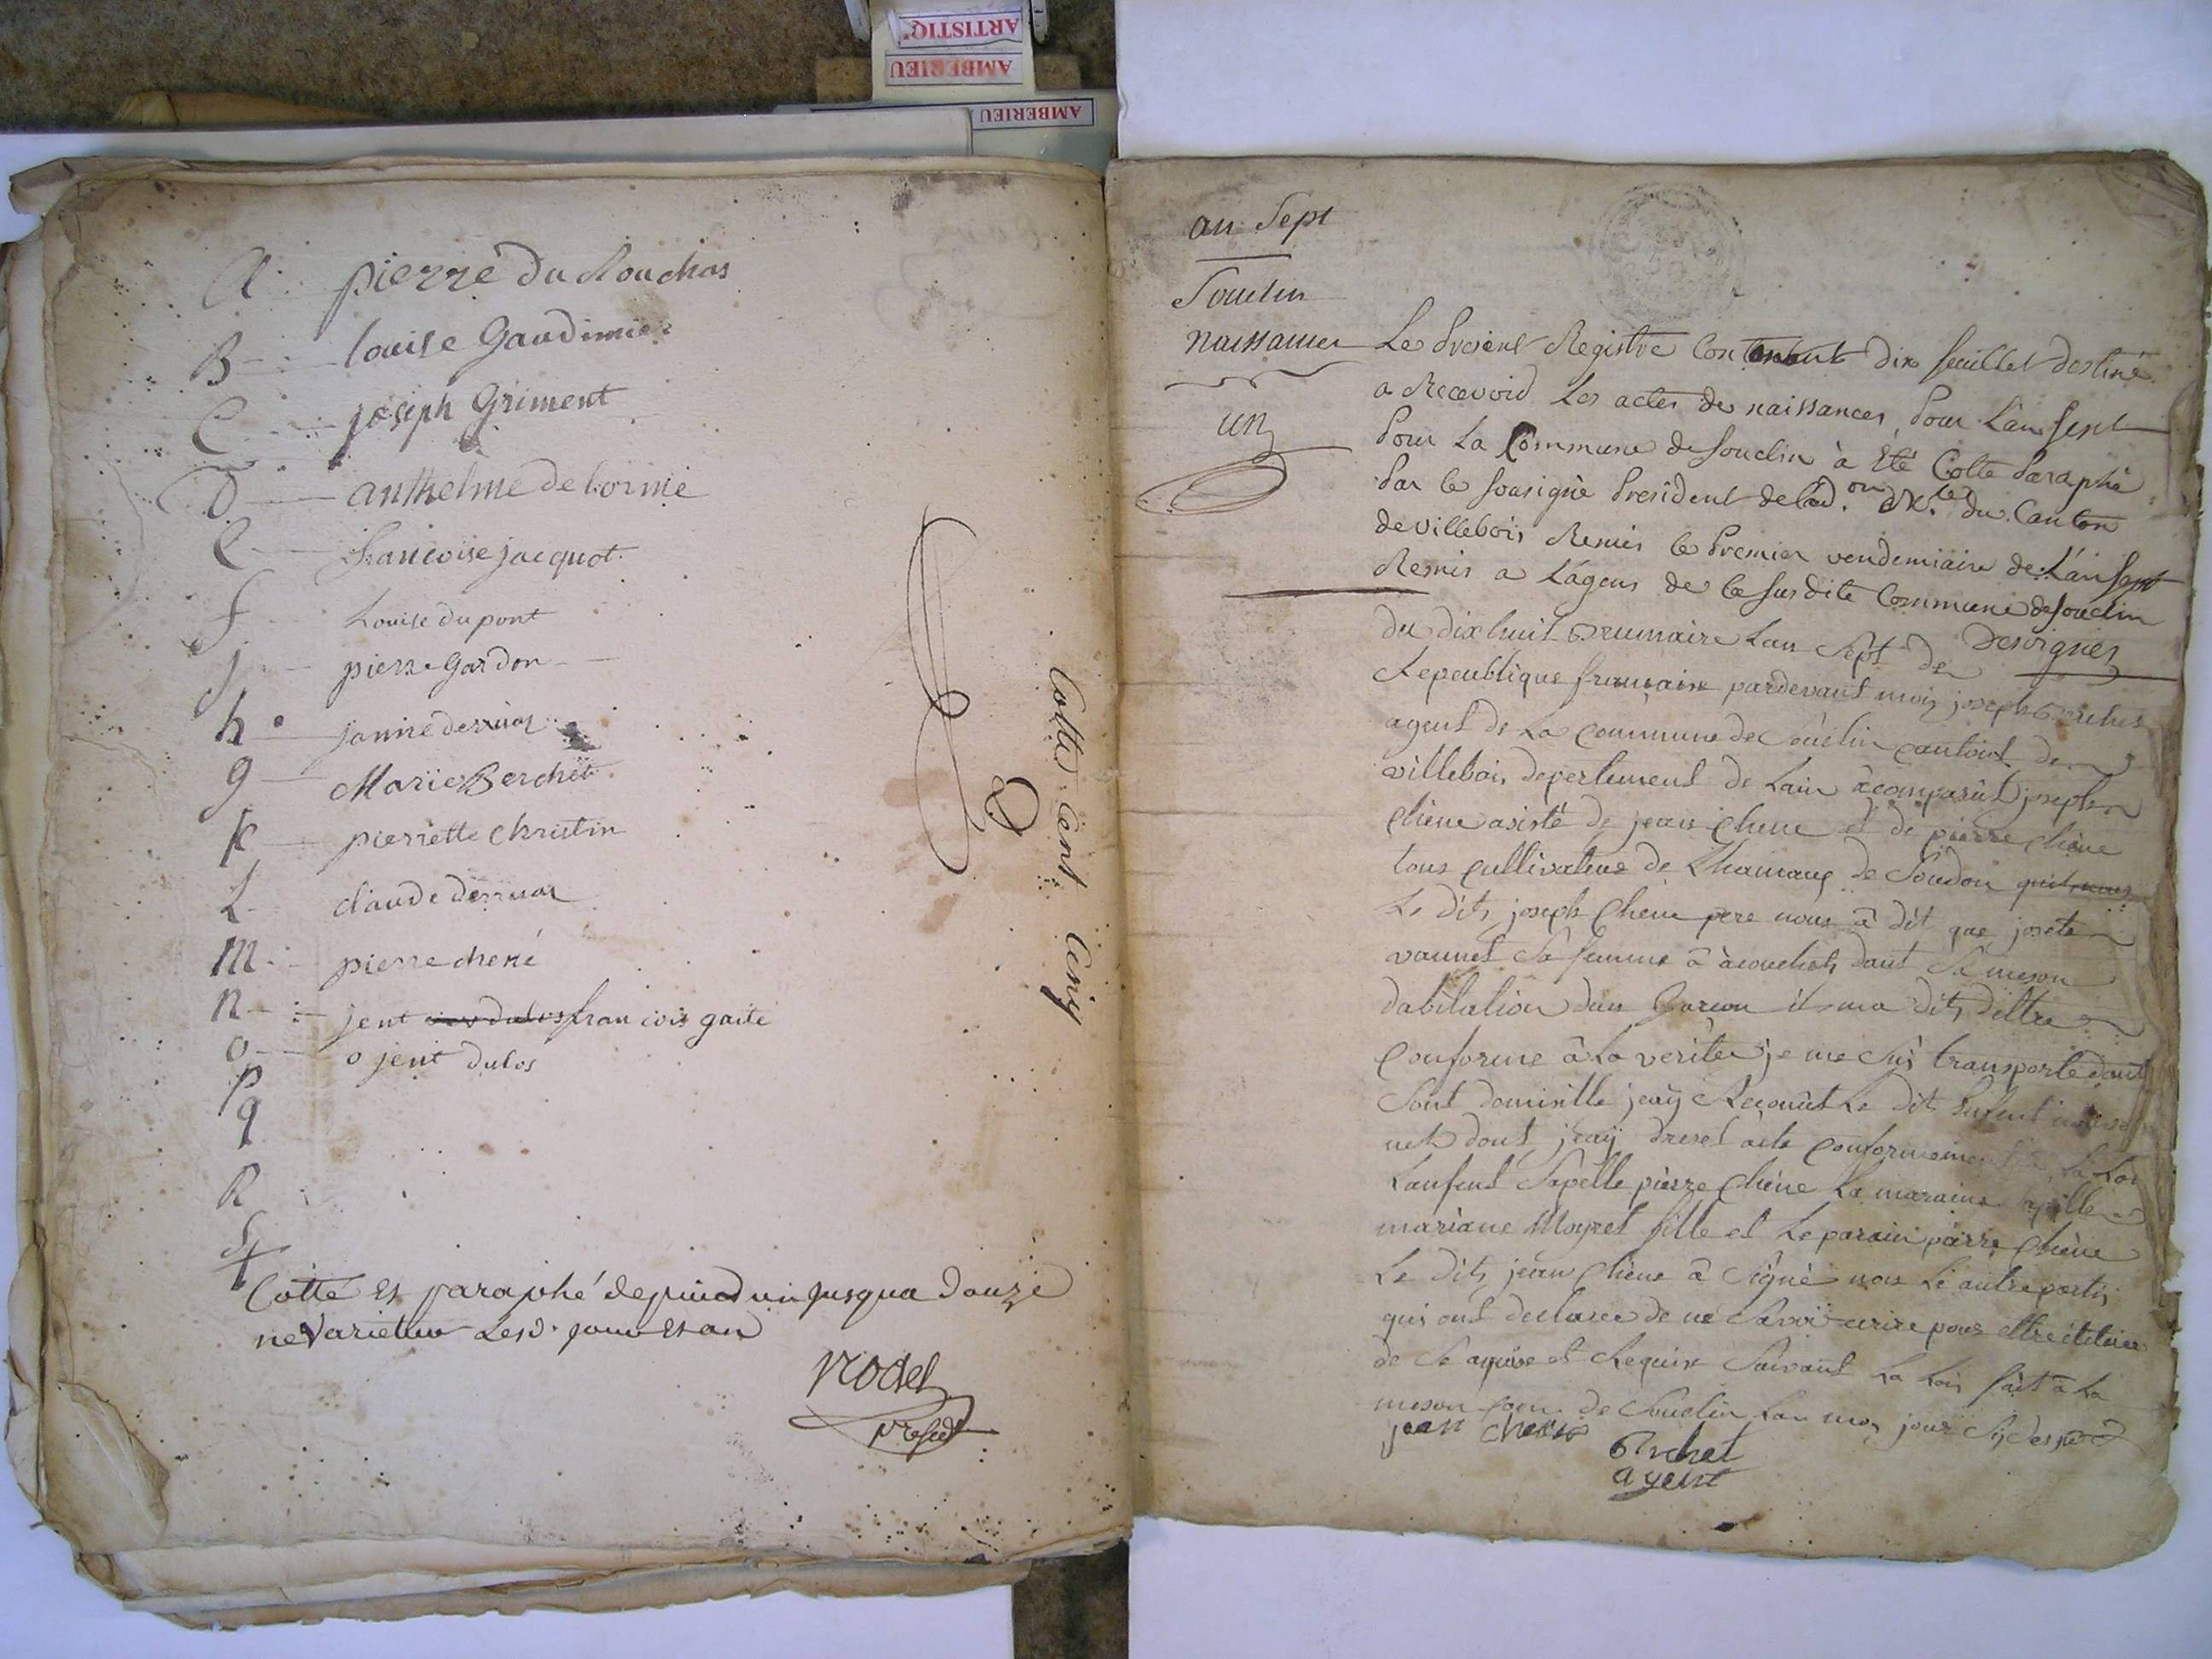 ARTISTIQ'
AMBERIEU
AMBERIEU
A pierre du Rouchas
B louise Gaudimier
C joseph Griment
D anthelme de lorme
E francoise jacquot
f Louise dupont
j pierre Gardon
h janne derriaz
g Marie Berchet
k pierrette christin
L claude derruaz
M pierre chene
n jent francois gaite
o o jent dulos
p
q
R
S
t
Cotté et paraphé depuis un jusqua douze
ne varietur Lesd. jour et an
Rodet
presidt
Cotté Cent Cinq
an Sept
Souclin
naissances
un
Le present Registre Contenant dix feuillet destiné
a Recevoir Les actes de naissances, pour L'an sept
pour La Commune de souclin à Eté Cotté paraphé
par le sousigné president de L'ad.on M.le du Canton
de villebois Remis le premier vendemiaire de L'an sept
Remis a L'agent de la susdite Commune de souclin
Desvignes
du dix huit Brumaire Lan Sept de
Republique francaise pardevant moy joseph Bruchet
agent de La Commune de Souclin cantont de
villebois depertement de Lain à comparut joseph
Chêne asisté de jean Chene et de pierre Chêne
tous cultivateur de Lhamaux de Soudon
Le dits joseph Chêne pere nous à dit que josete
vannet Sa femme à acouchets dant Sa meson
dabitation dun Garcon il ma dits dêttre
conforme à La verité je me suis transporté dant
Sont domicille jeay Reconut Le dit Enfent nouveau
neth dont jeay dresset acte conformement à La Loi
Lanfent Sapelle pierre Chêne La maraine apelle
mariane Moyret fille et Le parain pierre Chêne
Le dits jean Chêne à Signé non Lé autre partis
qui ont declarée de né Savoir ecrire pour
de Se aquise et Requise Suivant La Loi fait à La
meson com. de Souclin Lan mois jour Sy desus
jean chene
Bruchet
agent